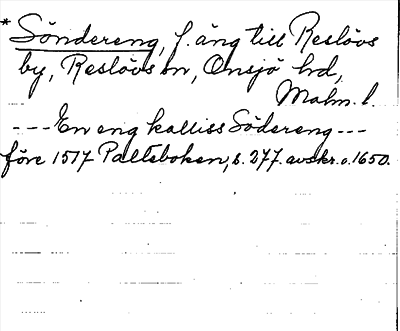 * Söndereng, f. äng till Reslövs
by, Reslövs sn, Onsjö hd,
Malm. l.
--- En eng kalliss Södereng ---
före 1517 Palteboken, s. 277. avskr. o. 1650.